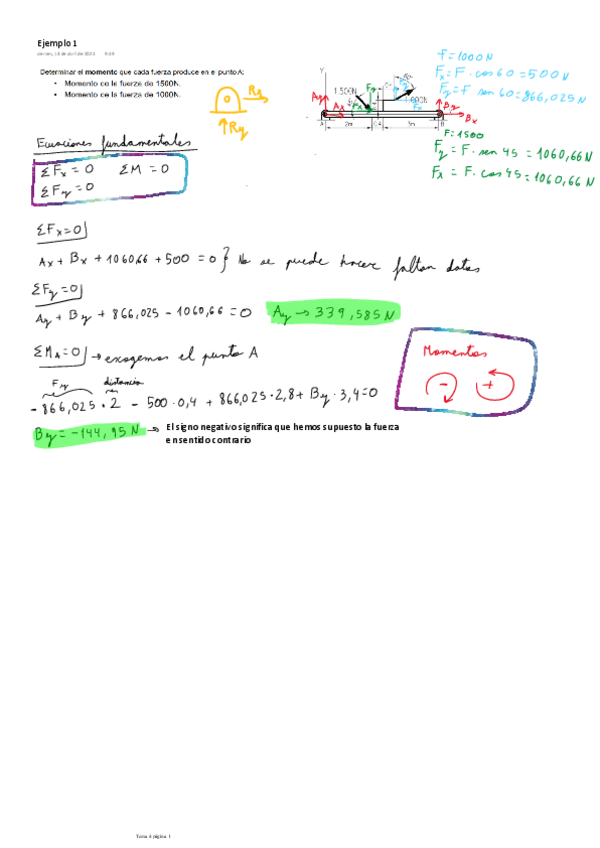 Ejemplo 1
Determinar el momento que cada fuerza produce en el punto A:
• Momento de la fuerza de 1500N.
• Momento de la fuerza de 1000N.
Rx
Ry
Y
1.500N
Fy
60º
1.000N
Fy
Fx
Fx
Ay
Ax
By
Bx
A
2m
0,4
3m
B
F=1000N
Fx = F · cos 60 = 500N
Fy = F · sen 60 = 866,025N
F=1500
Fy = F · sen 45 = 1060,66N
Fx = F · cos 45 = 1060,66N
Ecuaciones fundamentales
ΣFx = 0 ΣM = 0
ΣFy = 0
ΣFx=0
Ax + Bx + 1060,66 + 500 = 0 } No se puede hacer faltan datos
ΣFy=0
Ay + By + 866,025 - 1060,66 = 0 Ay → 339,585N
ΣMA=0 → exogemos el punto A
Momentos
- +
Fy distancia
-866,025 · 2 - 500·0,4 + 866,025·2,8 + By · 3,4=0
By = -144,95N → El signo negativo significa que hemos supuesto la fuerza
en sentido contrario
Tema 4 página 1